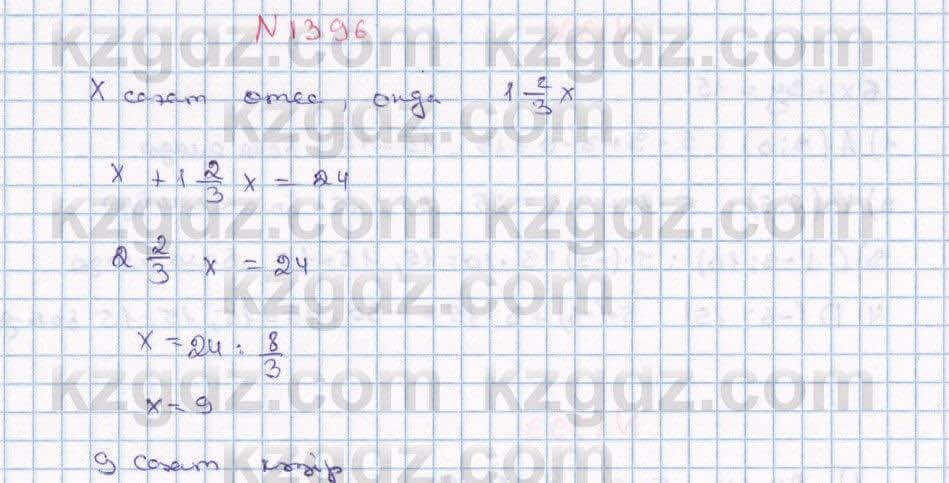 N1396
x сағат өтсе, онда 1 2/3 x
x + 1 2/3 x = 24
2 2/3 x = 24
x = 24 : 8/3
x = 9
9 сағат қазір
kzgdz.com
kzgdz.com
kzgdz.com
kzgdz.com
kzgdz.com
kzgdz.com
kzgdz.com
kzgdz.com